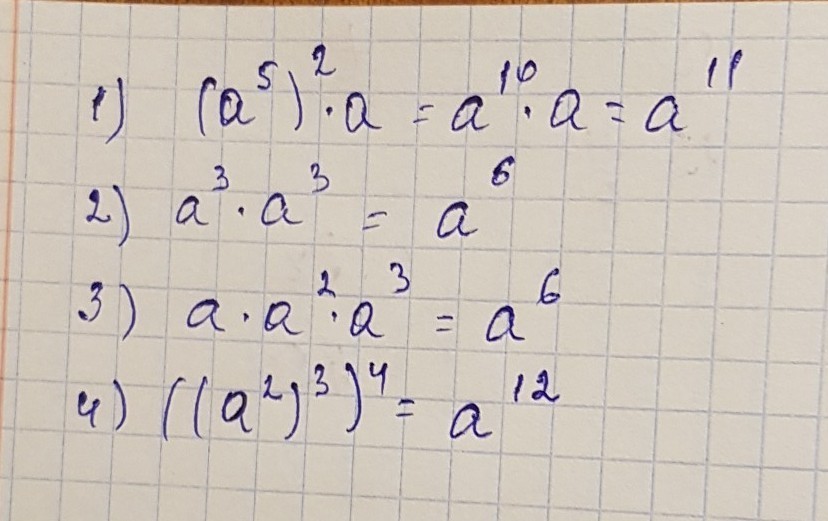 1) (a⁵)²·a = a¹⁰·a = a¹¹
2) a³·a³ = a⁶
3) a·a²·a³ = a⁶
4) ((a²)³)⁴ = a¹²